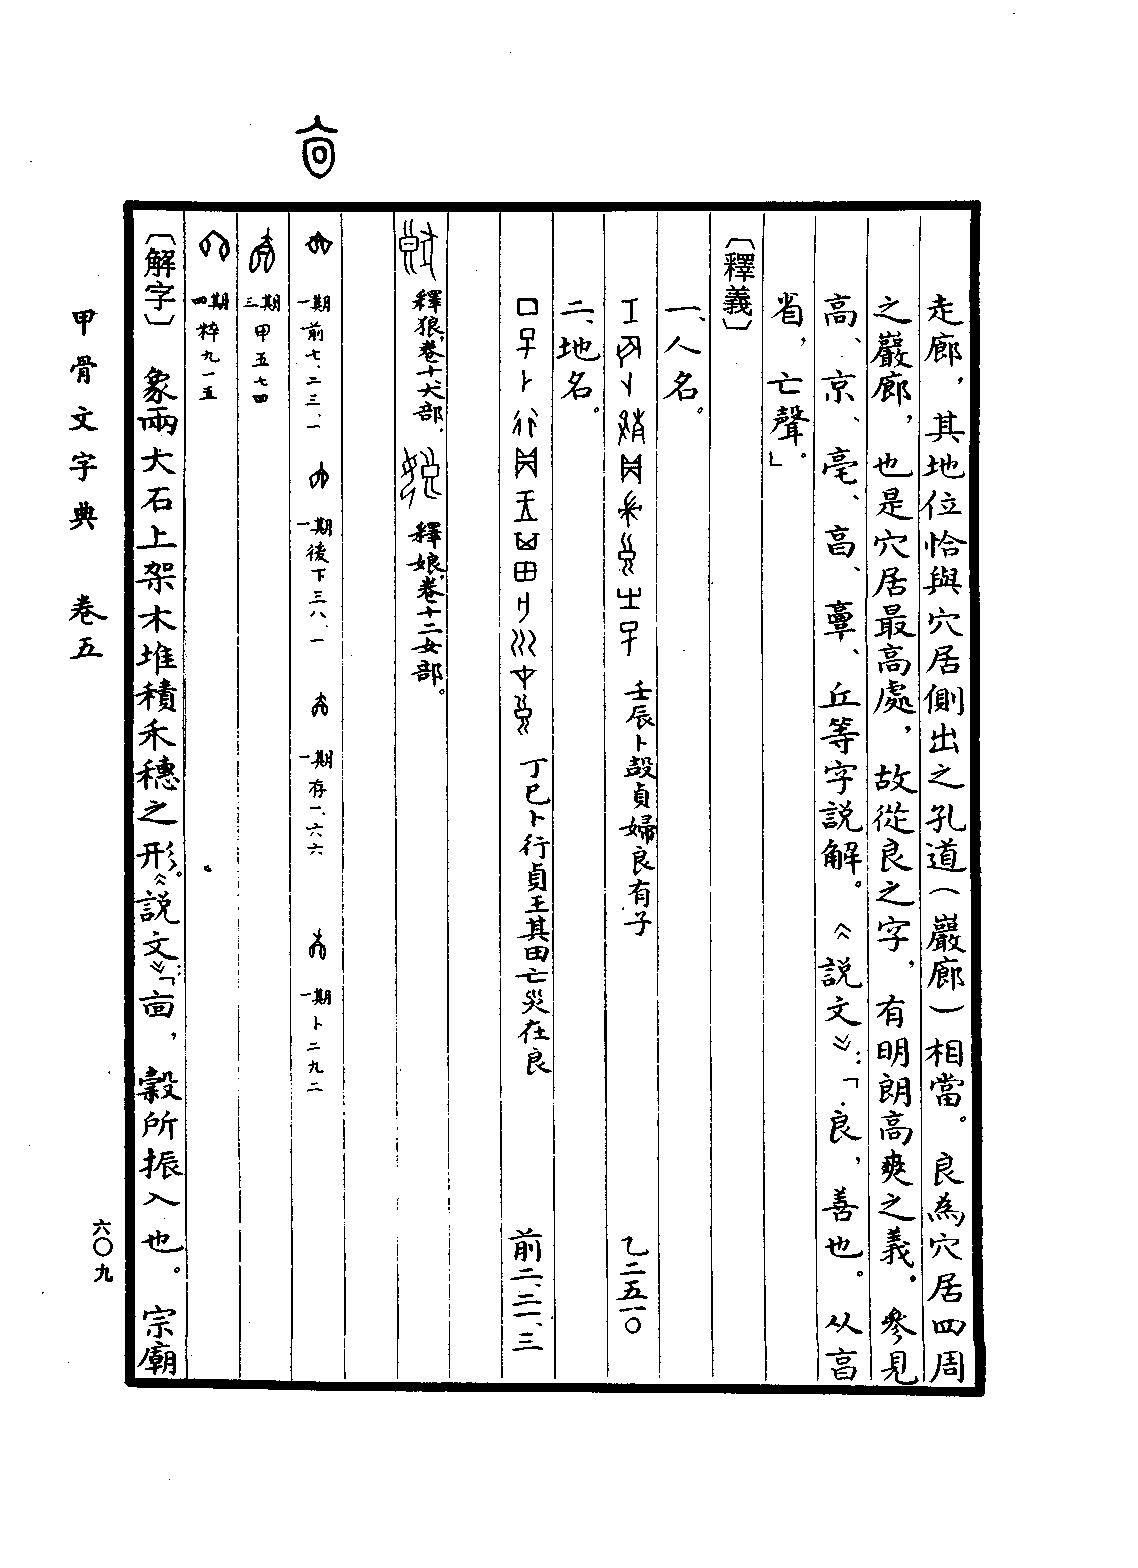 走廊，其地位恰與穴居側出之孔道（巖廊）相當。良為穴居四周
之巖廊，也是穴居最高處，故從良之字，有明朗高爽之義。參見
高、京、亳、㐭、𩫖、丘等字說解。《說文》：「良，善也。从㐭
省，亡聲。」
〔釋義〕
一、人名。
壬辰卜㱿貞婦良有子 乙二五一〇
二、地名。
丁巳卜行貞王其田亡災在良 前二、二一、三
釋狼，卷十犬部。 釋娘，卷十二女部。
一期 前七、二三、一 一期 後下三八、一 一期 存一、六六 一期 卜二九二
三期 甲五七四
四期 粹九一五
〔解字〕 象兩大石上架木堆積禾穗之形。《說文》：「㐭，穀所振入也。宗廟
甲骨文字典 卷五
六〇九